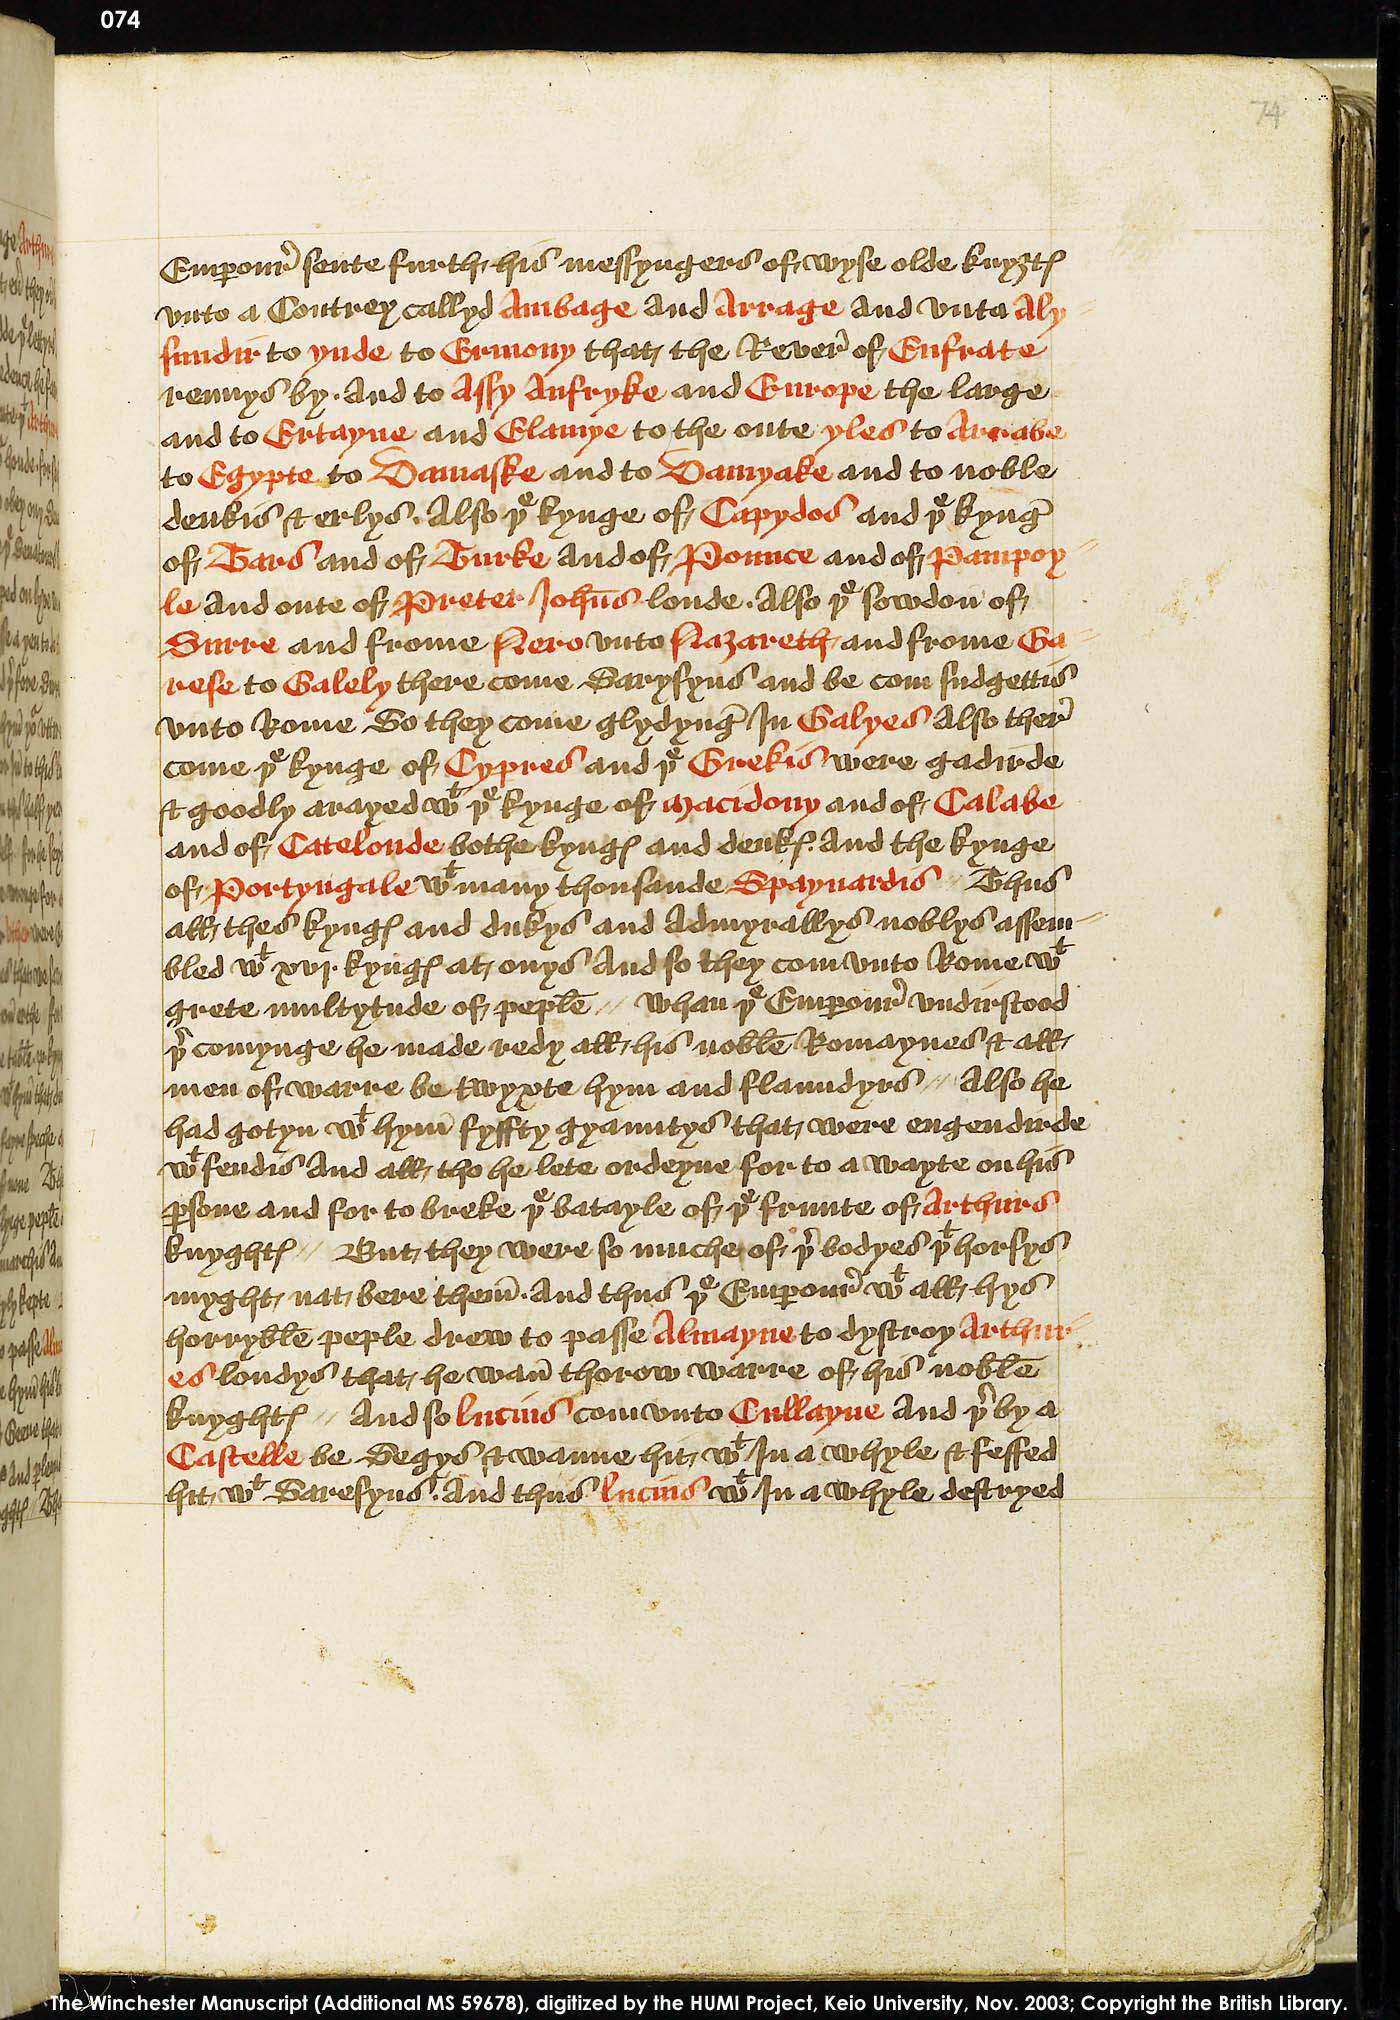 074
74
Emꝑourꝭ sente furth his messyngers of wyse olde knyȝtꝭ
vnto a Contrey callyd Ambage and Arrage and vnto Aly-
sundir to ynde to Ermony that the Reverꝭ of Eufrate
rennys by. And to Assy Aufryke and Europe the large
and to Ertayne and Elamye to the oute yles to Arrabe
to Egypte to Damaske and to Damyake and to noble
deukis & erlys. Also þe kynge of Capydos and þe kyngꝭ
of Tars and of Turke and of Pounce and of Pampoy-
le And oute of Preter Johūs londe. Also þe sowdon of
Surre and frome Nero vnto Nazareth and frome Ga-
rese to Galely there come Sarysyns and be com sudgettis
vnto Rome So they come glydyngꝭ In Galyes Also therꝭ
come þe kynge of Cypres and þe Grekis were gadirde
& goodly arayed wt þe kynge of Macidony and of Calabe
and of Catelonde bothe kyngꝭ and deukꝭ. And the kynge
of Portyngale wt many thousande Spaynardis // Thus
all thes kyngꝭ and dukys and Admyrallys noblys assem-
bled wt xvj. kyngꝭ at onys And so they com vnto Rome wt
grete multytude of peple // Whan þe Emꝑourꝭ vndirstood
þr comynge he made redy all his noble Romaynes & all
men of warre be twyxte hym and flaundyrs // Also he
had gotyn wt hym̄ fyffty gyauntys that were engendirde
wt fendis And all tho he lete ordeyne for to a wayte on his
ꝑsone and for to breke þe batayle of þe frunte of Arthurs
knyghtꝭ // But they were so muche of þr bodyes þt horsys
myght nat bere them̄. And thus þe Emꝑourꝭ wt all hys
horryble peple drew to passe Almayne to dystroy Arthur-
es londys that he wan̄ thorow warre of his noble
knyghtꝭ // And so lucius com vnto Cullayne And þr by a
Castelle be Segys & wanne hit wt In a whyle & feffed
hit wt Saresyns. And thus lucius wt In a whyle destryed
The Winchester Manuscript (Additional MS 59678), digitized by the HUMI Project, Keio University, Nov. 2003; Copyright the British Library.